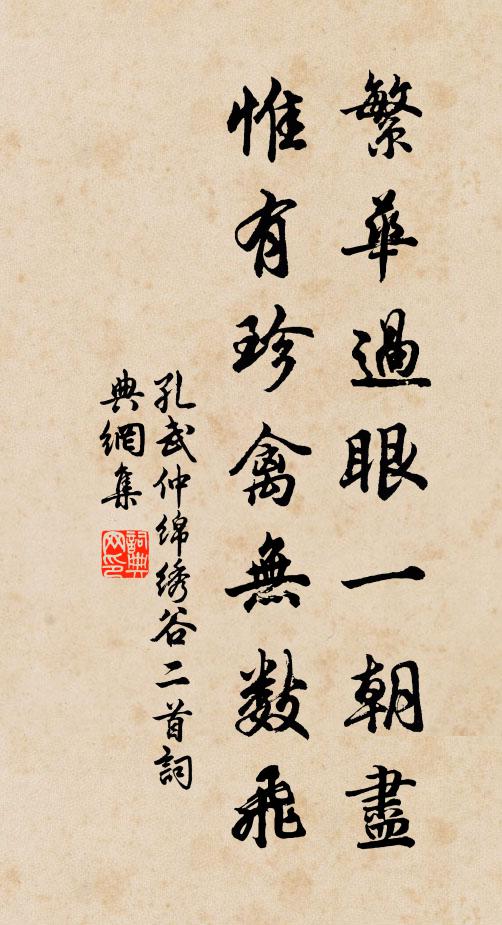 繁華過眼一朝盡
惟有珍禽無數飛
孔武仲綿綉谷二首詞
典網集
詞典網印